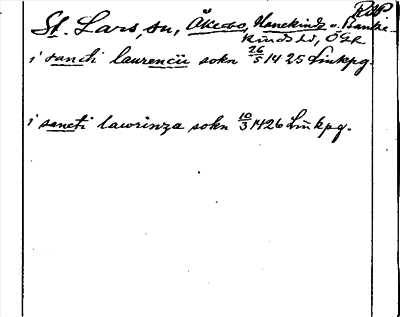 RAP
St. Lars, sn, Åkerbo, Hanekinds o. Bankekinds hd, Ögl.
i sancti laurencii sokn 26/5 1425 Linkpg.
i sancti lawrinza sokn 10/3 1426 Linkpg.